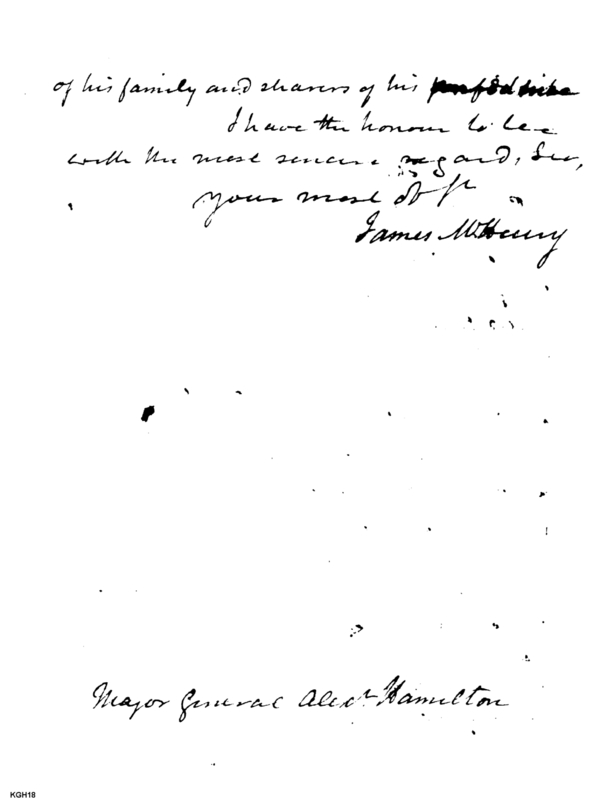 of his family and sharers of his
I have the honour to be
with the most sincere regard, Sir,
your most ob St
James McHenry
Major General Alexr Hamilton
KGH18